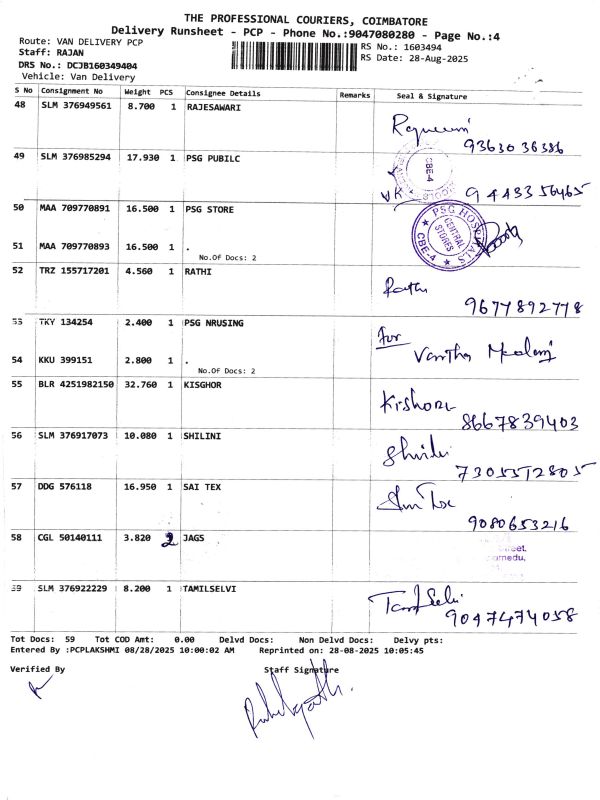 THE PROFESSIONAL COURIERS, COIMBATORE
Delivery Runsheet - PCP - Phone No.:9047080280 - Page No.:4
Route: VAN DELIVERY PCP
Staff: RAJAN
DRS No.: DCJB160349404
Vehicle: Van Delivery
RS No.: 1603494
RS Date: 28-Aug-2025
S No Consignment No Weight PCS Consignee Details Remarks Seal & Signature
48 SLM 376949561 8.700 1 RAJESAWARI
93630 36386
49 SLM 376985294 17.930 1 PSG PUBILC
CBE-4
VK 94433 56465
50 MAA 709770891 16.500 1 PSG STORE
PSG HOSPITALS CENTRAL STORES CBE-4
51 MAA 709770893 16.500 1 .
No.Of Docs: 2
52 TRZ 155717201 4.560 1 RATHI
Rathi
9677892778
53 TKY 134254 2.400 1 PSG NRUSING
For
54 KKU 399151 2.800 1 .
No.Of Docs: 2
55 BLR 4251982150 32.760 1 KISGHOR
Kishore
8667839403
56 SLM 376917073 10.080 1 SHILINI
7305512805
57 DDG 576118 16.950 1 SAI TEX
9080653216
58 CGL 50140111 3.820 2 JAGS
59 SLM 376922229 8.200 1 TAMILSELVI
9047474058
Tot Docs: 59 Tot COD Amt: 0.00 Delvd Docs: Non Delvd Docs: Delvy pts:
Entered By :PCPLAKSHMI 08/28/2025 10:00:02 AM Reprinted on: 28-08-2025 10:05:45
Verified By Staff Signature